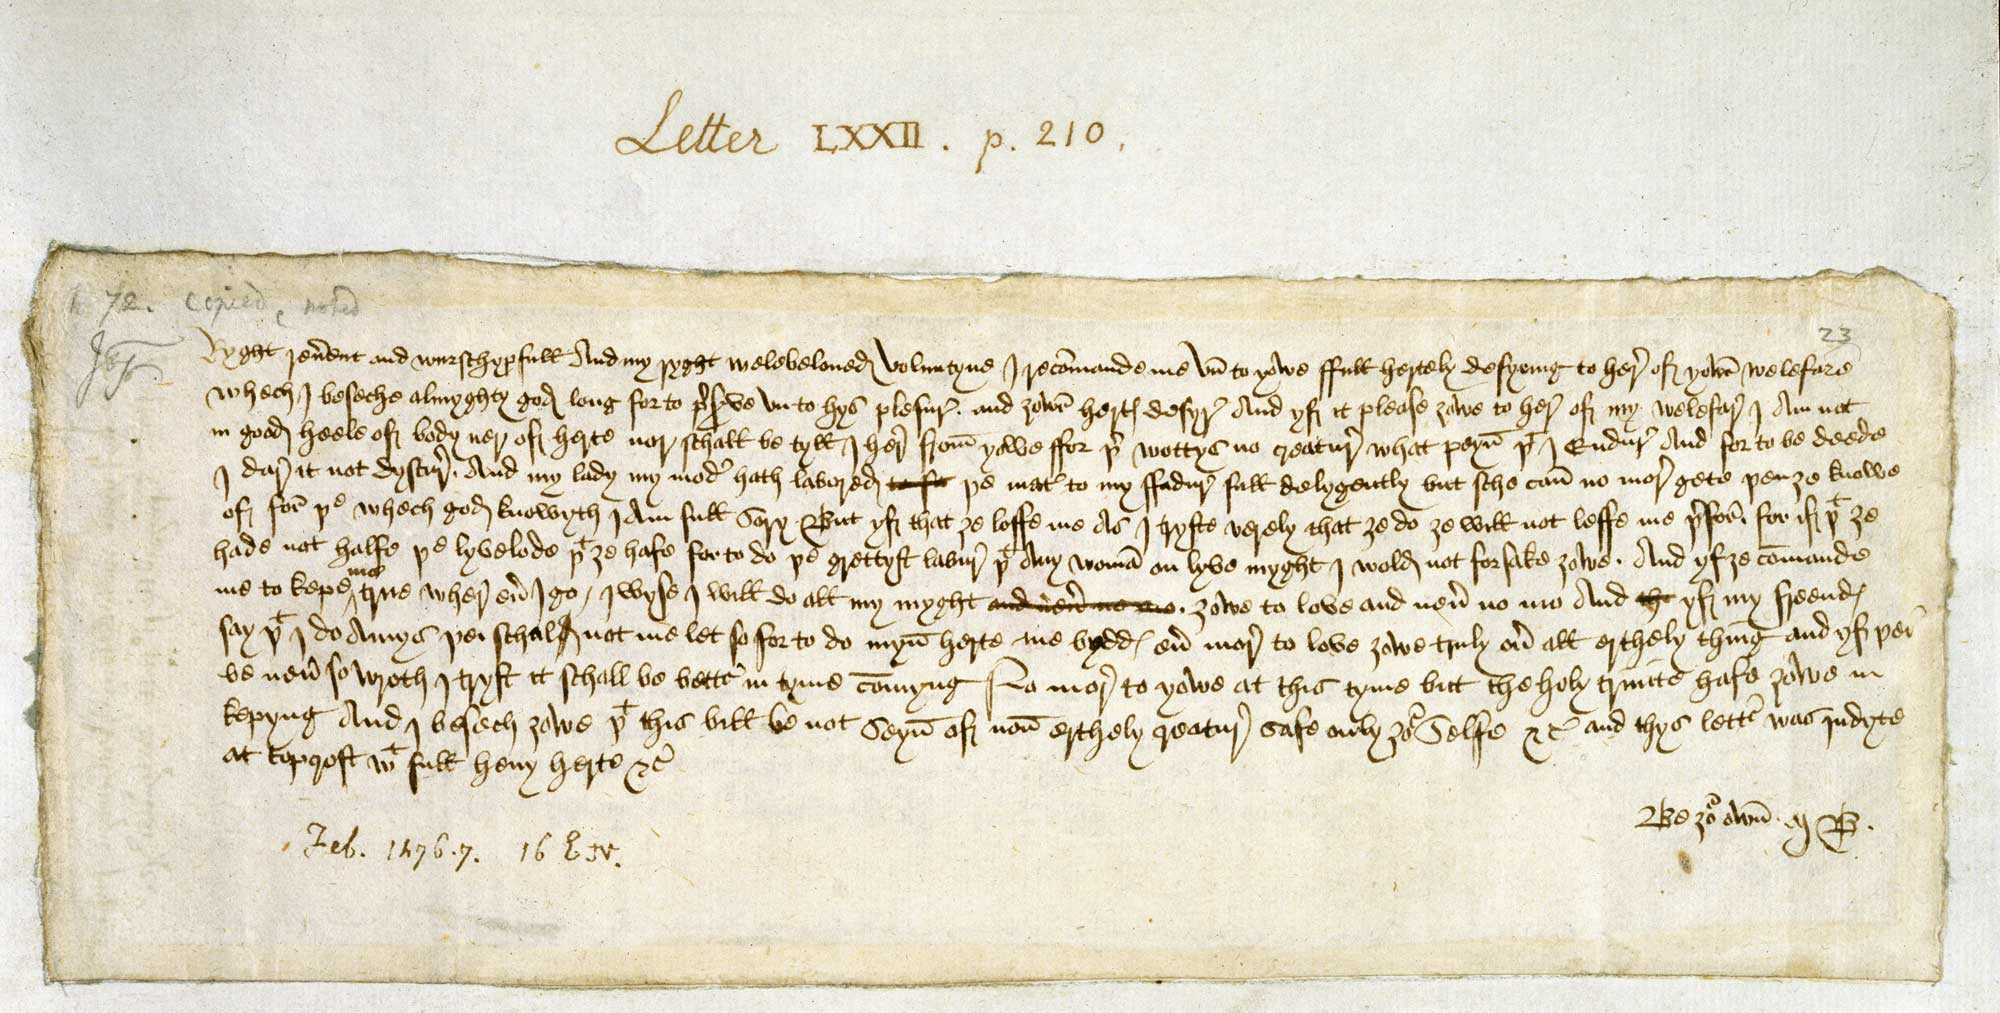 Letter LXXII. p. 210.
72. copied, noted
23
Ryght reu̅ent and wurschypfull And my ryght welebeloued Voluntyne I reco̅mande me vn to yowe ffull hertely desyring to here of yowr welefare
whech I beseche almyghty god long for to preserve vn to hys plesure. and ȝowr hertes desyre And yf it please ȝowe to here of my welefare I Am not
in good heele of body ner of herte nor schall be tyll I here from yowe ffor þer wottys no creature what peyn þt I Endure And for to be deede
I dare it not dyscure. And my lady my moder hath labored þe mater to my ffadure full delygently but sche can no more gete þen ȝe knowe
of for þe whech god knowyth I Am full Sory. But yf that ȝe loffe me As I tryste verely that ȝe do ȝe will not leffe me þerfor. for if þt ȝe
hade not halfe þe lyvelode þt ȝe hafe for to do þe grettyst labure þt Any woman on lyve myght I wold not forsake ȝowe. And yf ȝe co̅mande
me to kepe me true where euer I go I wyse I will do all my myght and neuer no mo. ȝowe to love and neuer no mo And yf my freendes
say þt I do Amys þei schall not me let so for to do myn herte me byddes euer more to love ȝowe truly ouer all erthely thing and yf þei
be neuer so wroth I tryst it schall be better in tyme co̅myng No more to yowe at this tyme but the holy trinite hafe ȝowe in
kepyng And I besech ȝowe þt this bill be not seyn of non erthely creature safe only ȝour Selfe &c and thys letter was indyte
at topcroft wt full heuy herte &c
Be ȝour own. M B.
Feb. 1476.7. 16 E IV.